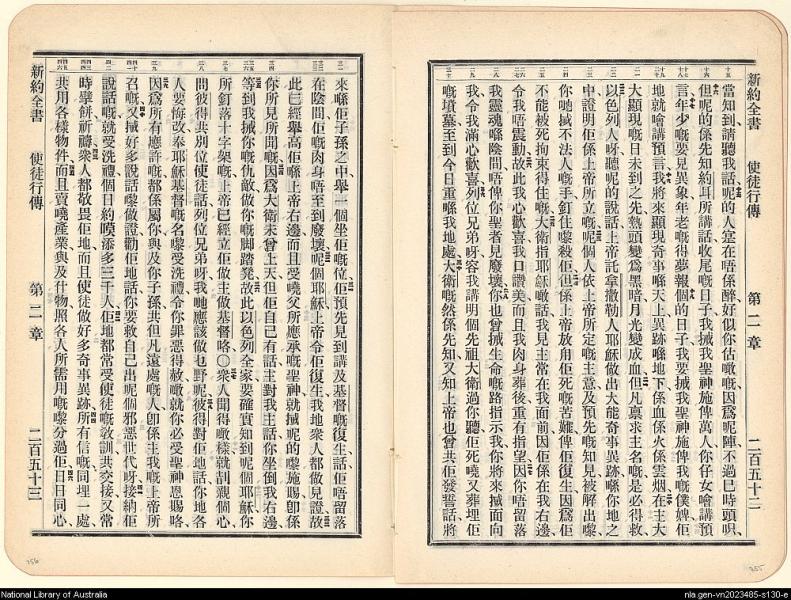 新約全書 使徒行傳 第二章 二百五十二
當知到請聽我話呢的人寔在唔係醉好似你估嘅嘅因爲呢陣不過巳時頭唄
但呢的係先知約耳所講話收尾嘅日子我
聖神施俾萬人你仔女噲講預
言年少嘅要見異象年老嘅得夢報個的日子我要
聖神施俾我嘅僕婢佢
地就噲講預言我將來顯現奇事喺天上異跡喺地下係血係火係雲烟在主大
大顯現嘅日未到之先熱頭變爲黑暗月光變成血但凡禀求主名嘅是必得救
以色列人呀聽呢的說話上帝託拿撒勒人耶穌做出大能奇事異跡喺你地之
中證明佢係上帝所立嘅呢個人依上帝所定嘅主意及預先嘅知見被解出嚟
你哋
不法人嘅手釘住嚟殺佢但係上帝放甪佢死嘅苦難俾佢復生因爲佢
不能被死拘束得住嘅大衛指耶穌噉話我見主常在我面前因佢係在我右邊
令我唔震動故此我心歡喜我口讚美而且我肉身葬後重有指望因你唔留落
我靈魂喺陰間唔俾你聖者見廢壞你
生命嘅路指示我你將來
面向
我令我滿心歡喜列位兄弟呀容我講明個先祖大衛過你聽佢死嘵又葬埋佢
嘅墳墓至到今日重喺我地處大衛嘅然係先知又知上帝也曾共佢發誓話將
新約全書 使徒行傳 第二章 二百五十三
來喺佢子孫之中舉一個坐佢嘅位佢預先見到講及基督嘅復生話佢唔留落
在陰間佢嘅肉身唔至到廢壞呢個耶穌上帝令佢復生我地衆人都做見證故
此已經舉高佢喺上帝右邊而且受嘵父所應承嘅聖神就
呢的嚟施賜卽係
你所見所聞嘅因爲大衛未曾上天但佢自己有話主對我主話你坐倒我右邊
等到我
你嘅仇敵做你嘅脚踏凳故此以色列全家要確實知到呢個耶穌你
所釘落十字架嘅上帝已經立佢做主做基督咯〇衆人聞得噉樣就刮親個心
問彼得共別位使徒話列位兄弟呀我哋應該做乜野呢彼得對佢地話你地各
人要悔改奉耶穌基督嘅名嚟受洗禮令你罪惡得赦噉就你必受聖神恩賜咯
因爲所有應許嘅都係屬你與及你子孫共但凡遠處嘅人卽係主我嘅上帝所
召嘅又
好多說話嚟做證勸佢地話你要救自己出呢個邪惡世代呀接納佢
說話嘅就受洗禮個日約嘆添多三千人佢地都常受使徒嘅敎訓共交接又常
時擘餅祈禱衆人都敬畏佢地而且使徒做好多奇事異跡所有信嘅同埋一處
共用各樣物件而且賣嘵產業與及什物照各人所需用嘅嚟分過佢日日同心
256
255
National Library of Australia
nla.gen-vn2023485-s130-e